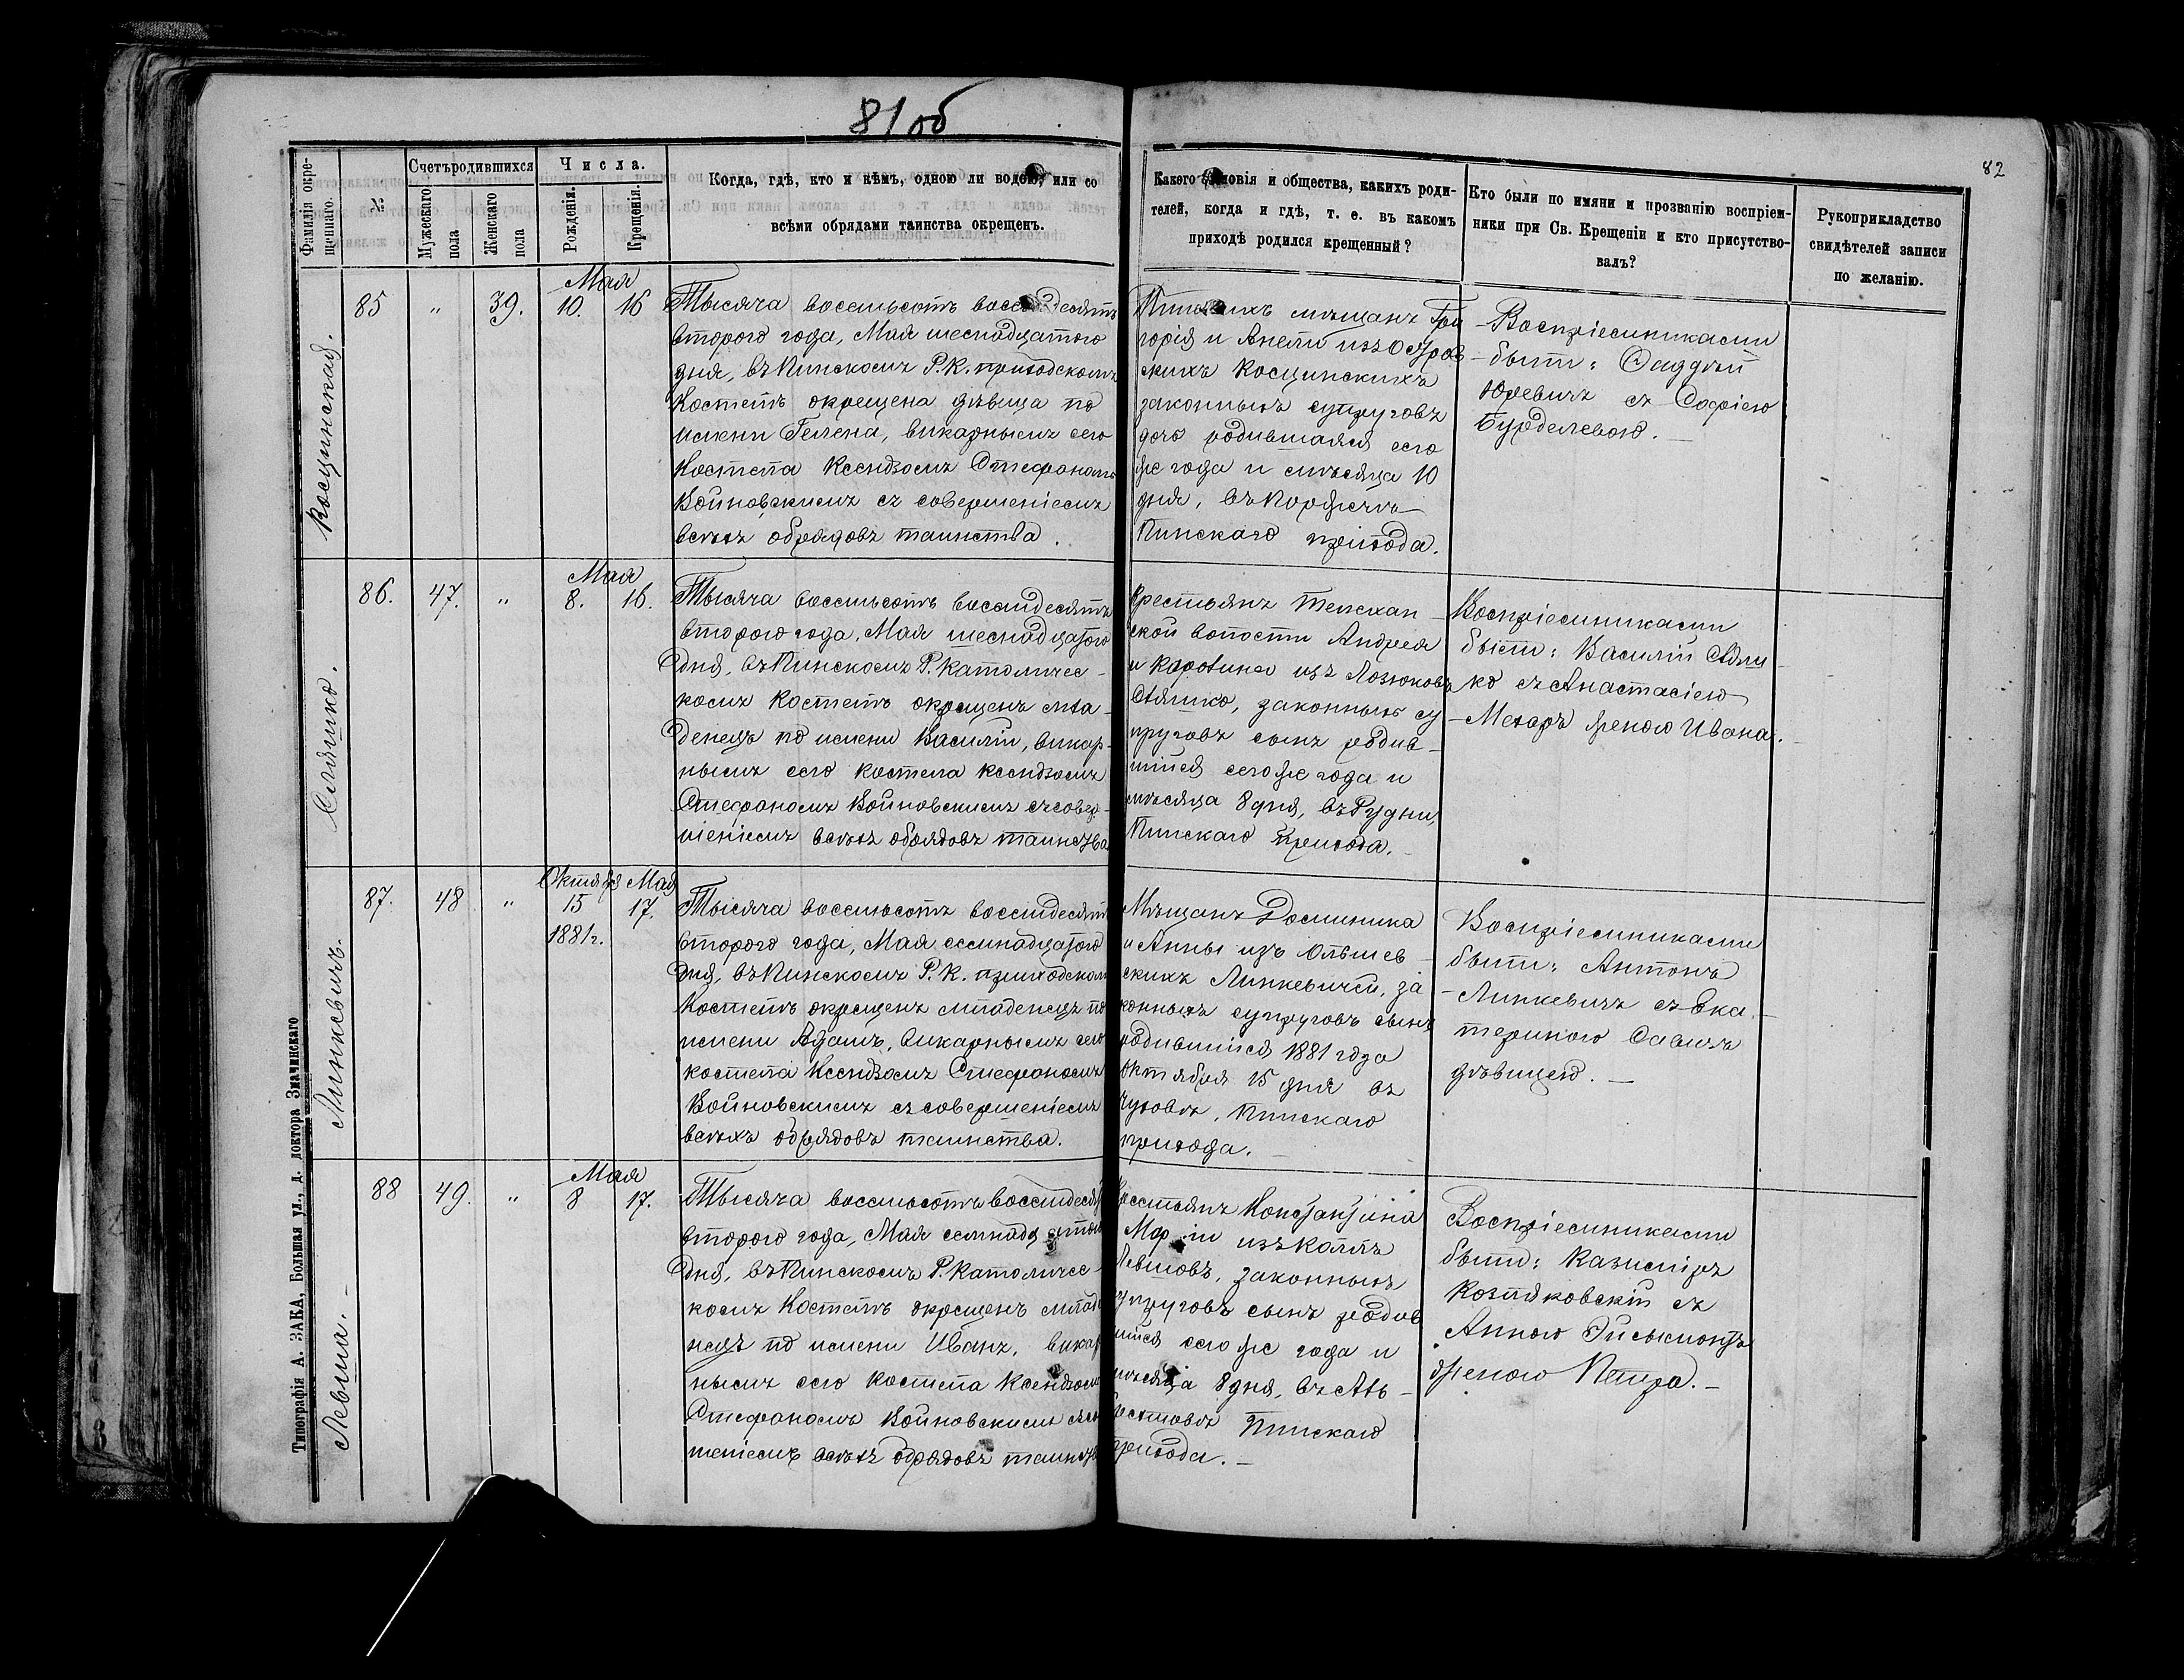 81 об
82
Фамилія окре-
щеннаго.
№
Счетъ родившихся
Мужескаго
пола
Женскаго
пола
Числа.
Рожденія.
Крещенія.
Когда, гдѣ, кто и кѣмъ, одною ли водою, или со
всѣми обрядами таинства окрещенъ.
Какего сословія и общества, какихъ роди-
телей, когда и гдѣ, т. е. въ какомъ
приходѣ родился крещенный?
Кто были по имяни и прозванію воспріем-
ники при Св. Крещеніи и кто присутство-
валъ?
Рукоприкладство
свидѣтелей записи
по желанію.
Косцинская.
85 „ 39.
Мая
10. 16
Тысяча восемьсотъ восемдесятъ
втораго года, Мая шеснадцатого
дня, въ Пинскомъ Р. К. приходскомъ
Костелѣ окрещена дѣвица по
имени Гелена, викарнымъ сего
Костела Ксендзомъ Стефаномъ
Войновскимъ съ совершеніемъ
всѣхъ обрядовъ таинства.
Пинскихъ мѣщанъ Гри
горія и Анели изъ Островскихъ
Косцинскихъ
законныхъ супруговъ
дочь родившаяся сего
же года и мѣсяца 10
дня, въ
Пинскаго прихода.
Воспріемниками
были: Фаддей
Юревичъ съ Софіею
Бурделевою.
Сляшко.
86. 47. „
Мая
8. 16.
Тысяча восемьсотъ восемдесятъ
втораго года, Мая шеснадцатого
дня, въ Пинскомъ Р. Католичес-
комъ Костелѣ окрещенъ мла-
денецъ по имени Василій, викар-
нымъ сего костела ксендзомъ
Стефаномъ Войновскимъ съ совер-
шеніемъ всѣхъ обрядовъ таинства
Крестьянъ Телехан-
ской волости Андрея
и Каролины изъ Лозюковъ
законныхъ су
пруговъ сынъ родив-
шійся сего же года и
мѣсяца 8 дня, въ Рудни,
Пинскаго прихода.
Воспріемниками
были: Василій
ко съ Анастасіею
женою Ивана.
Линкевичъ.
87. 48 „
Октября Мая
15 17.
1881 г.
Тысяча восемьсотъ восемдесятъ
втораго года, Мая семнадцатого
дня, въ Пинскомъ Р. К. приходскомъ
Костелѣ окрещенъ младенецъ по
имени Адамъ, викарнымъ сего
костела Ксендзомъ Стефаномъ
Войновскимъ съ совершеніемъ
всѣхъ обрядовъ таинства.
Мѣщанъ Доминика
и Анны изъ Ольшев-
скихъ Линкевичей, за
конныхъ супруговъ сынъ
родившійся 1881 года
Октября 15 дня въ
Пинскаго
прихода.
Воспріемниками
были: Антонъ
Линкевичъ съ Ека-
териною
дѣвицею.
Левша.
88 49. „
Мая
8 17.
Тысяча восемьсотъ восемдесятъ
втораго года, Мая семнадцатого
дня, въ Пинскомъ Р. Католичес-
комъ Костелѣ окрещенъ младе
нецъ по имени Иванъ, викар
нымъ сего костела Ксендзомъ
Стефаномъ Войновскимъ съ сов
шеніемъ всѣхъ обрядовъ таинства
Крестьянъ Константина
Маріи изъ
Левшовъ, законныхъ
супруговъ сынъ родив
шійся сего же года и
мѣсяца 8 дня, въ
Пинскаго
прихода.
Воспріемниками
были: Казиміръ
Козляковскій съ
Анною Эйсымонтъ
женою Петра.
Типографія А. ЗАКА, Большая ул., д. доктора Значинскаго